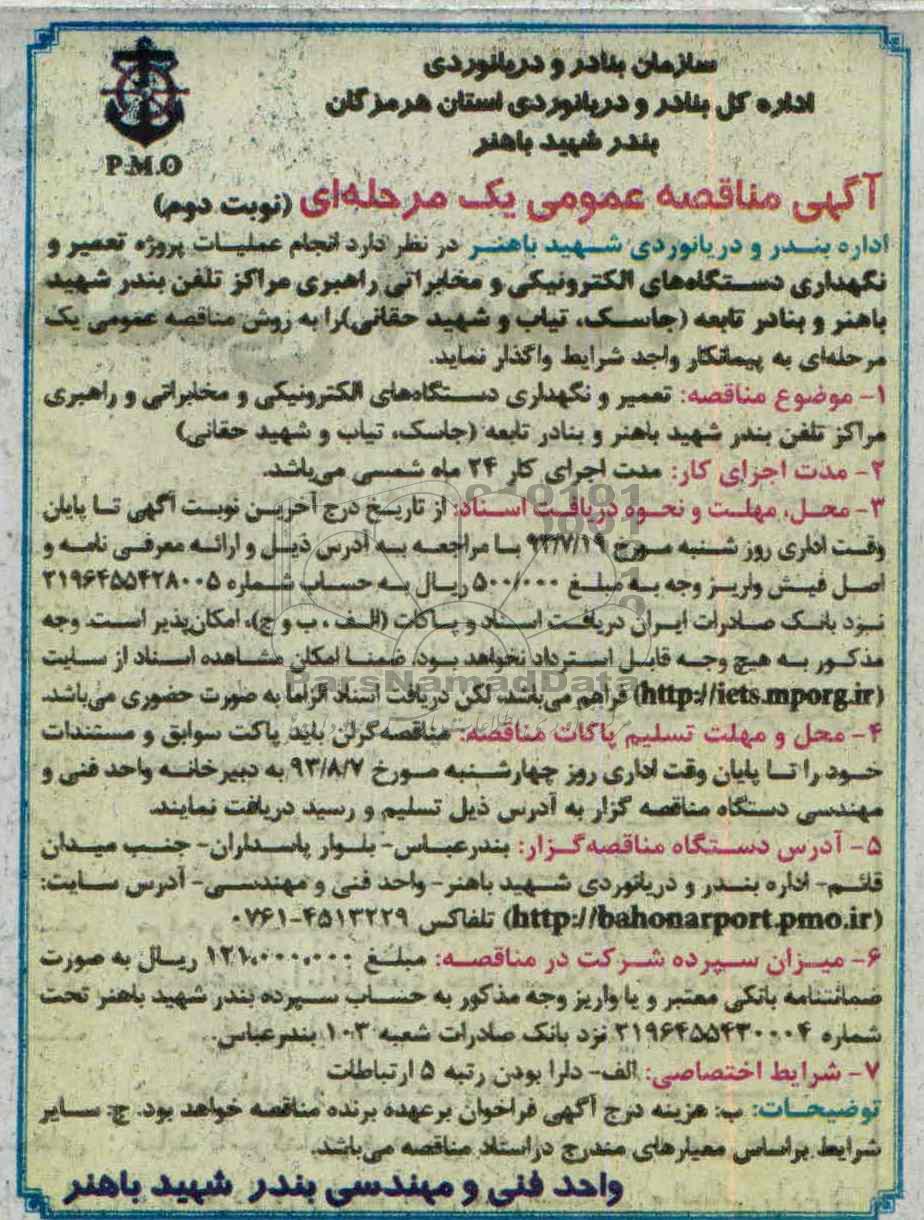 سازمان بنادر و دریانوردی
اداره کل بنادر و دریانوردی استان هرمزگان
بندر شهید باهنر
P.M.O
آگهی مناقصه عمومی یک مرحله‌ای (نوبت دوم)
اداره بندر و دریانوردی شهید باهنر در نظر دارد انجام عملیات پروژه تعمیر و
نگهداری دستگاه‌های الکترونیکی و مخابراتی راهبری مراکز تلفن بندر شهید
باهنر و بنادر تابعه (جاسک، تیاب و شهید حقانی) را به روش مناقصه عمومی یک
مرحله‌ای به پیمانکار واجد شرایط واگذار نماید.
۱- موضوع مناقصه: تعمیر و نگهداری دستگاه‌های الکترونیکی و مخابراتی و راهبری
مراکز تلفن بندر شهید باهنر و بنادر تابعه (جاسک، تیاب و شهید حقانی)
۲- مدت اجرای کار: مدت اجرای کار ۲۴ ماه شمسی می‌باشد.
۳- محل، مهلت و نحوه دریافت اسناد: از تاریخ درج آخرین نوبت آگهی تا پایان
وقت اداری روز شنبه مورخ ۹۳/۷/۱۹ با مراجعه به آدرس ذیل و ارائه معرفی نامه و
اصل فیش واریز وجه به مبلغ ۵۰۰/۰۰۰ ریال به حساب شماره ۲۱۹۶۴۵۵۴۲۸۰۰۵
نزد بانک صادرات ایران دریافت اسناد و پاکات (الف، ب و ج)، امکان‌پذیر است. وجه
مذکور به هیچ وجه قابل استرداد نخواهد بود. ضمنا امکان مشاهده اسناد از سایت
(http://iets.mporg.ir) فراهم می‌باشد، لکن دریافت اسناد الزاما به صورت حضوری می‌باشد.
ParsNamadData
۴- محل و مهلت تسلیم پاکات مناقصه: مناقصه‌گران باید پاکت سوابق و مستندات
خود را تا پایان وقت اداری روز چهارشنبه مورخ ۹۳/۸/۷ به دبیرخانه واحد فنی و
مهندسی دستگاه مناقصه گزار به آدرس ذیل تسلیم و رسید دریافت نمایند.
۵- آدرس دستگاه مناقصه‌گزار: بندرعباس- بلوار پاسداران- جنب میدان
قائم- اداره بندر و دریانوردی شهید باهنر- واحد فنی و مهندسی- آدرس سایت:
(http://bahonarport.pmo.ir) تلفاکس ۴۵۱۳۲۲۹-۰۷۶۱
۶- میزان سپرده شرکت در مناقصه: مبلغ ۱۲۱،۰۰۰،۰۰۰ ریال به صورت
ضمانتنامه بانکی معتبر و یا واریز وجه مذکور به حساب سپرده بندر شهید باهنر تحت
شماره ۲۱۹۶۴۵۵۴۳۰۰۰۴ نزد بانک صادرات شعبه ۱۰۳ بندرعباس.
۷- شرایط اختصاصی: الف- دارا بودن رتبه ۵ ارتباطات
توضیحات: ب: هزینه درج آگهی فراخوان برعهده برنده مناقصه خواهد بود. ج: سایر
شرایط براساس معیارهای مندرج در اسناد مناقصه می‌باشد.
واحد فنی و مهندسی بندر شهید باهنر